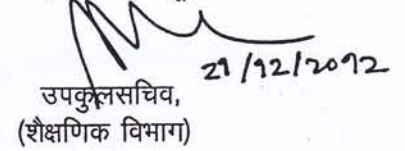 21/12/2012
उपकुलसचिव,
(शैक्षणिक विभाग)